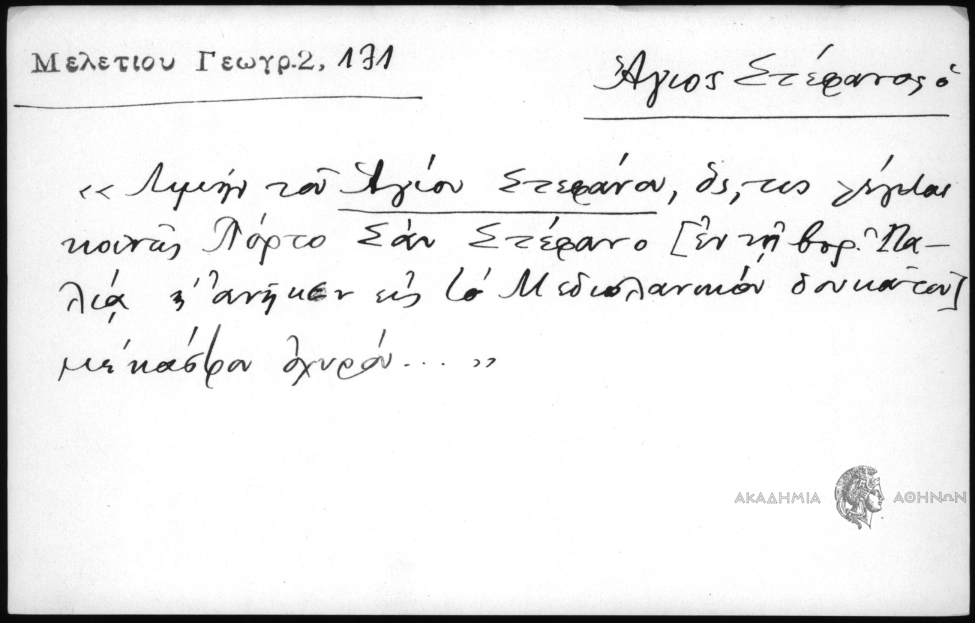 Μελετιου Γεωγρ.2, 171
Ἅγιος Στέφανος ὁ
« Λιμὴν τοῦ Ἁγίου Στεφάνου, ὅς,τις λέγεται
κοινῶς Πόρτο Σὰν Στέφανο [ἐν τῇ βορ. Ἰτα-
λίᾳ ἀνῆκεν εἰς τὸ Μεδιολανικὸν δουκάτον]
μὲ κάστρον ὀχυρόν... »
ΑΚΑΔΗΜΙΑ ΑΘΗΝΩΝ